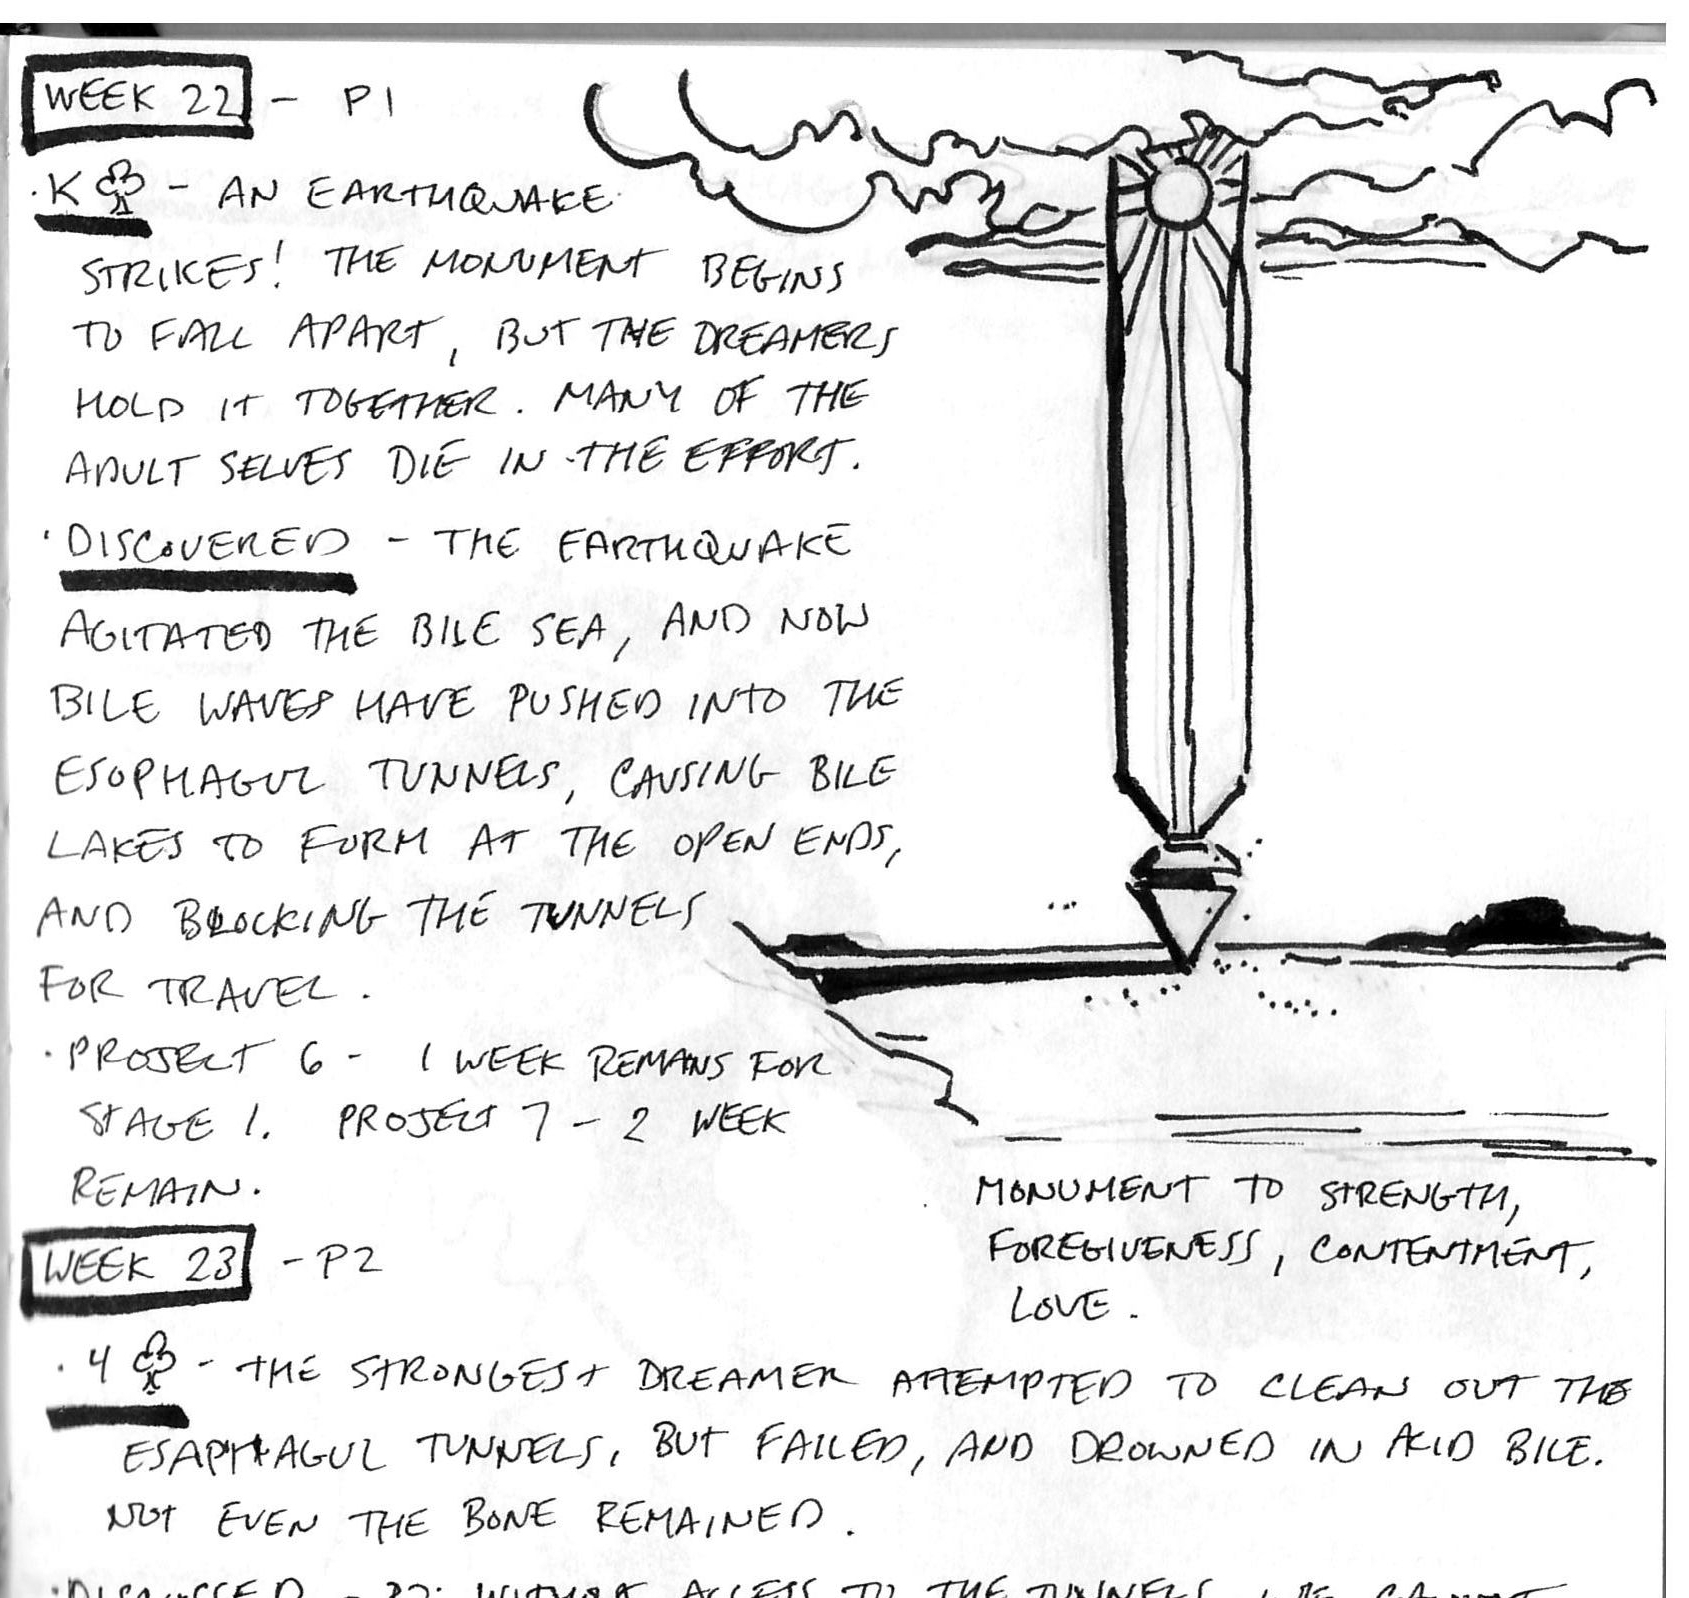 WEEK 22 - P1
· K ♣ - AN EARTHQUAKE
STRIKES! THE MONUMENT BEGINS
TO FALL APART, BUT THE DREAMERS
HOLD IT TOGETHER. MANY OF THE
ADULT SELVES DIE IN THE EFFORT.
· DISCOVERED - THE EARTHQUAKE
AGITATED THE BILE SEA, AND NOW
BILE WAVES HAVE PUSHED INTO THE
ESOPHAGUL TUNNELS, CAUSING BILE
LAKES TO FORM AT THE OPEN ENDS,
AND BLOCKING THE TUNNELS
FOR TRAVEL.
· PROJECT 6 - 1 WEEK REMANS FOR
STAGE 1. PROJECT 7 - 2 WEEK
REMAIN.
MONUMENT TO STRENGTH,
FOREGIVENESS, CONTENTMENT,
LOVE.
WEEK 23 - P2
· 4 ♣ - THE STRONGEST DREAMER ATTEMPTED TO CLEAN OUT THE
ESAPHAGUL TUNNELS, BUT FAILED, AND DROWNED IN ACID BILE.
NOT EVEN THE BONE REMAINED.
· DISCUSSED - P2: WITHOUT ACCESS TO THE TUNNELS, WE CANNOT